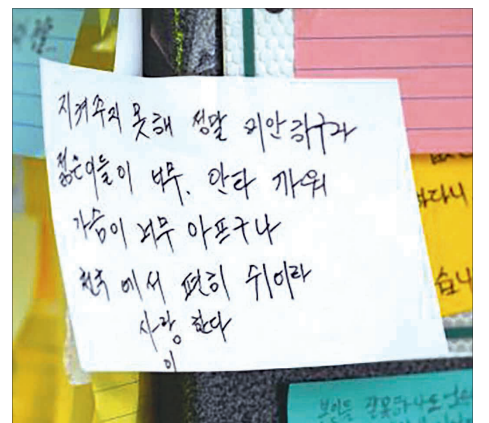 지켜주지 못해 정말 미안하구나
젊은이들이 너무. 안타까워
가슴이 너무 아프구나
천국에서 편히 쉬어라
사랑한다
습니